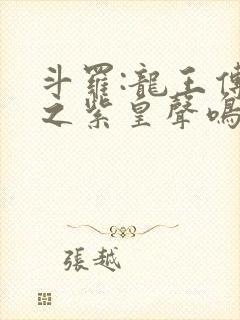 斗羅:龍王傳
之紫皇聲鳴
張越